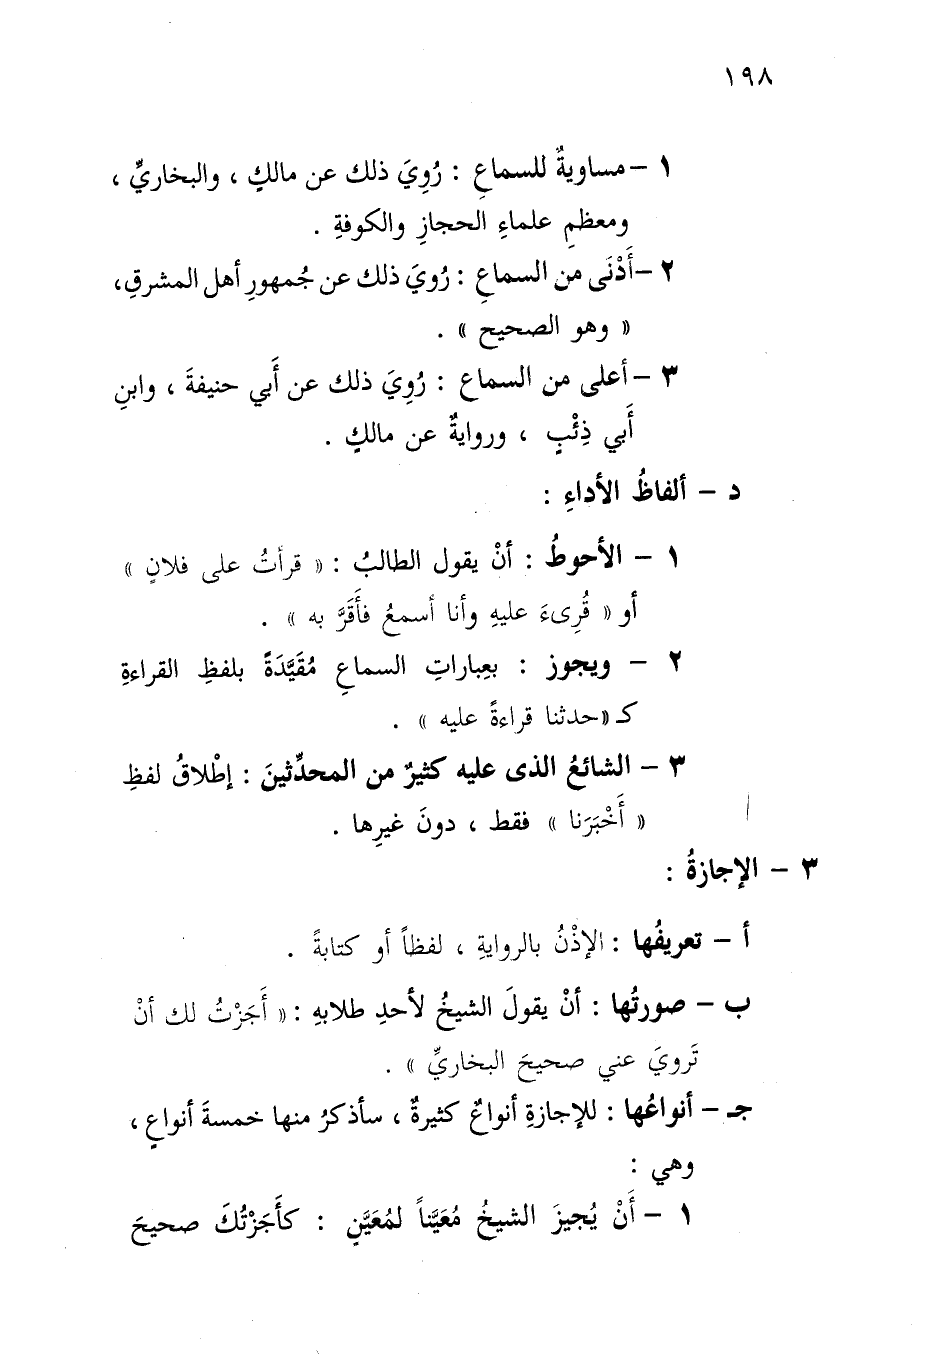 ١٩٨
١ – مساويةٌ للسماعِ : رُوِيَ ذلك عن مالكٍ ، والبخاريِّ ،
ومعظمِ علماءِ الحجازِ والكوفةِ .
٢ – أَدْنَى من السماعِ : رُويَ ذلك عن جُمهورِ أهل المشرقِ،
« وهو الصحيح » .
٣ – أعلى من السماع : رُوِيَ ذلك عن أَبي حنيفةَ ، وابنِ
أَبي ذِئْبٍ ، وروايةٌ عن مالكٍ .
د – ألفاظُ الأداءِ :
١ – الأحوطُ : أنْ يقول الطالبُ : « قرأتُ على فلانٍ »
أو « قُرِىءَ عليهِ وأنا أسمعُ فأَقَرَّ به » .
٢ – ويجوز : بعِباراتِ السماعِ مُقَيَّدَةً بلفظِ القراءةِ
كـ «حدثنا قراءةً عليه » .
٣ – الشائعُ الذى عليه كثيرٌ من المحدِّثينَ : إطْلاقُ لفظِ
« أَخْبَرَنا » فقط ، دونَ غيرِها .
٣ – الإجازةُ :
أ – تعريفُها : الإذْنُ بالروايةِ ، لفظاً أو كتابةً .
ب – صورتُها : أنْ يقولَ الشيخُ لأحدِ طلابهِ : « أَجَزْتُ لك أنْ
تَرويَ عني صحيحَ البخاريِّ » .
جـ – أنواعُها : للإجازةِ أنواعٌ كثيرةٌ ، سأذكرُ منها خمسةَ أنواعٍ ،
وهي :
١ – أَنْ يُجيزَ الشيخُ مُعَيَّناً لمُعَيَّنٍ : كأَجَزْتُكَ صحيحَ